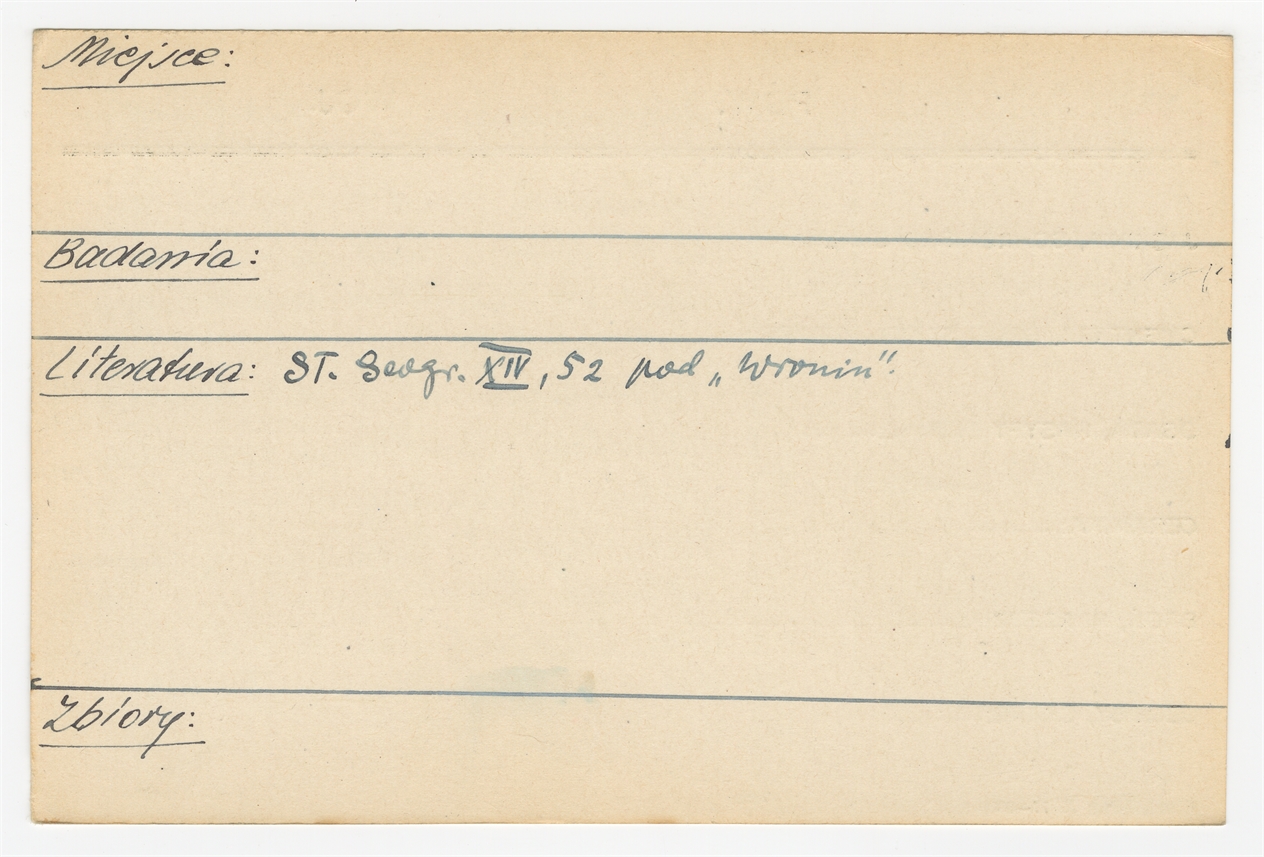 Miejsce:
Badania:
Literatura: ST. Geogr. XIV, 52 pod „Wronin".
Zbiory: